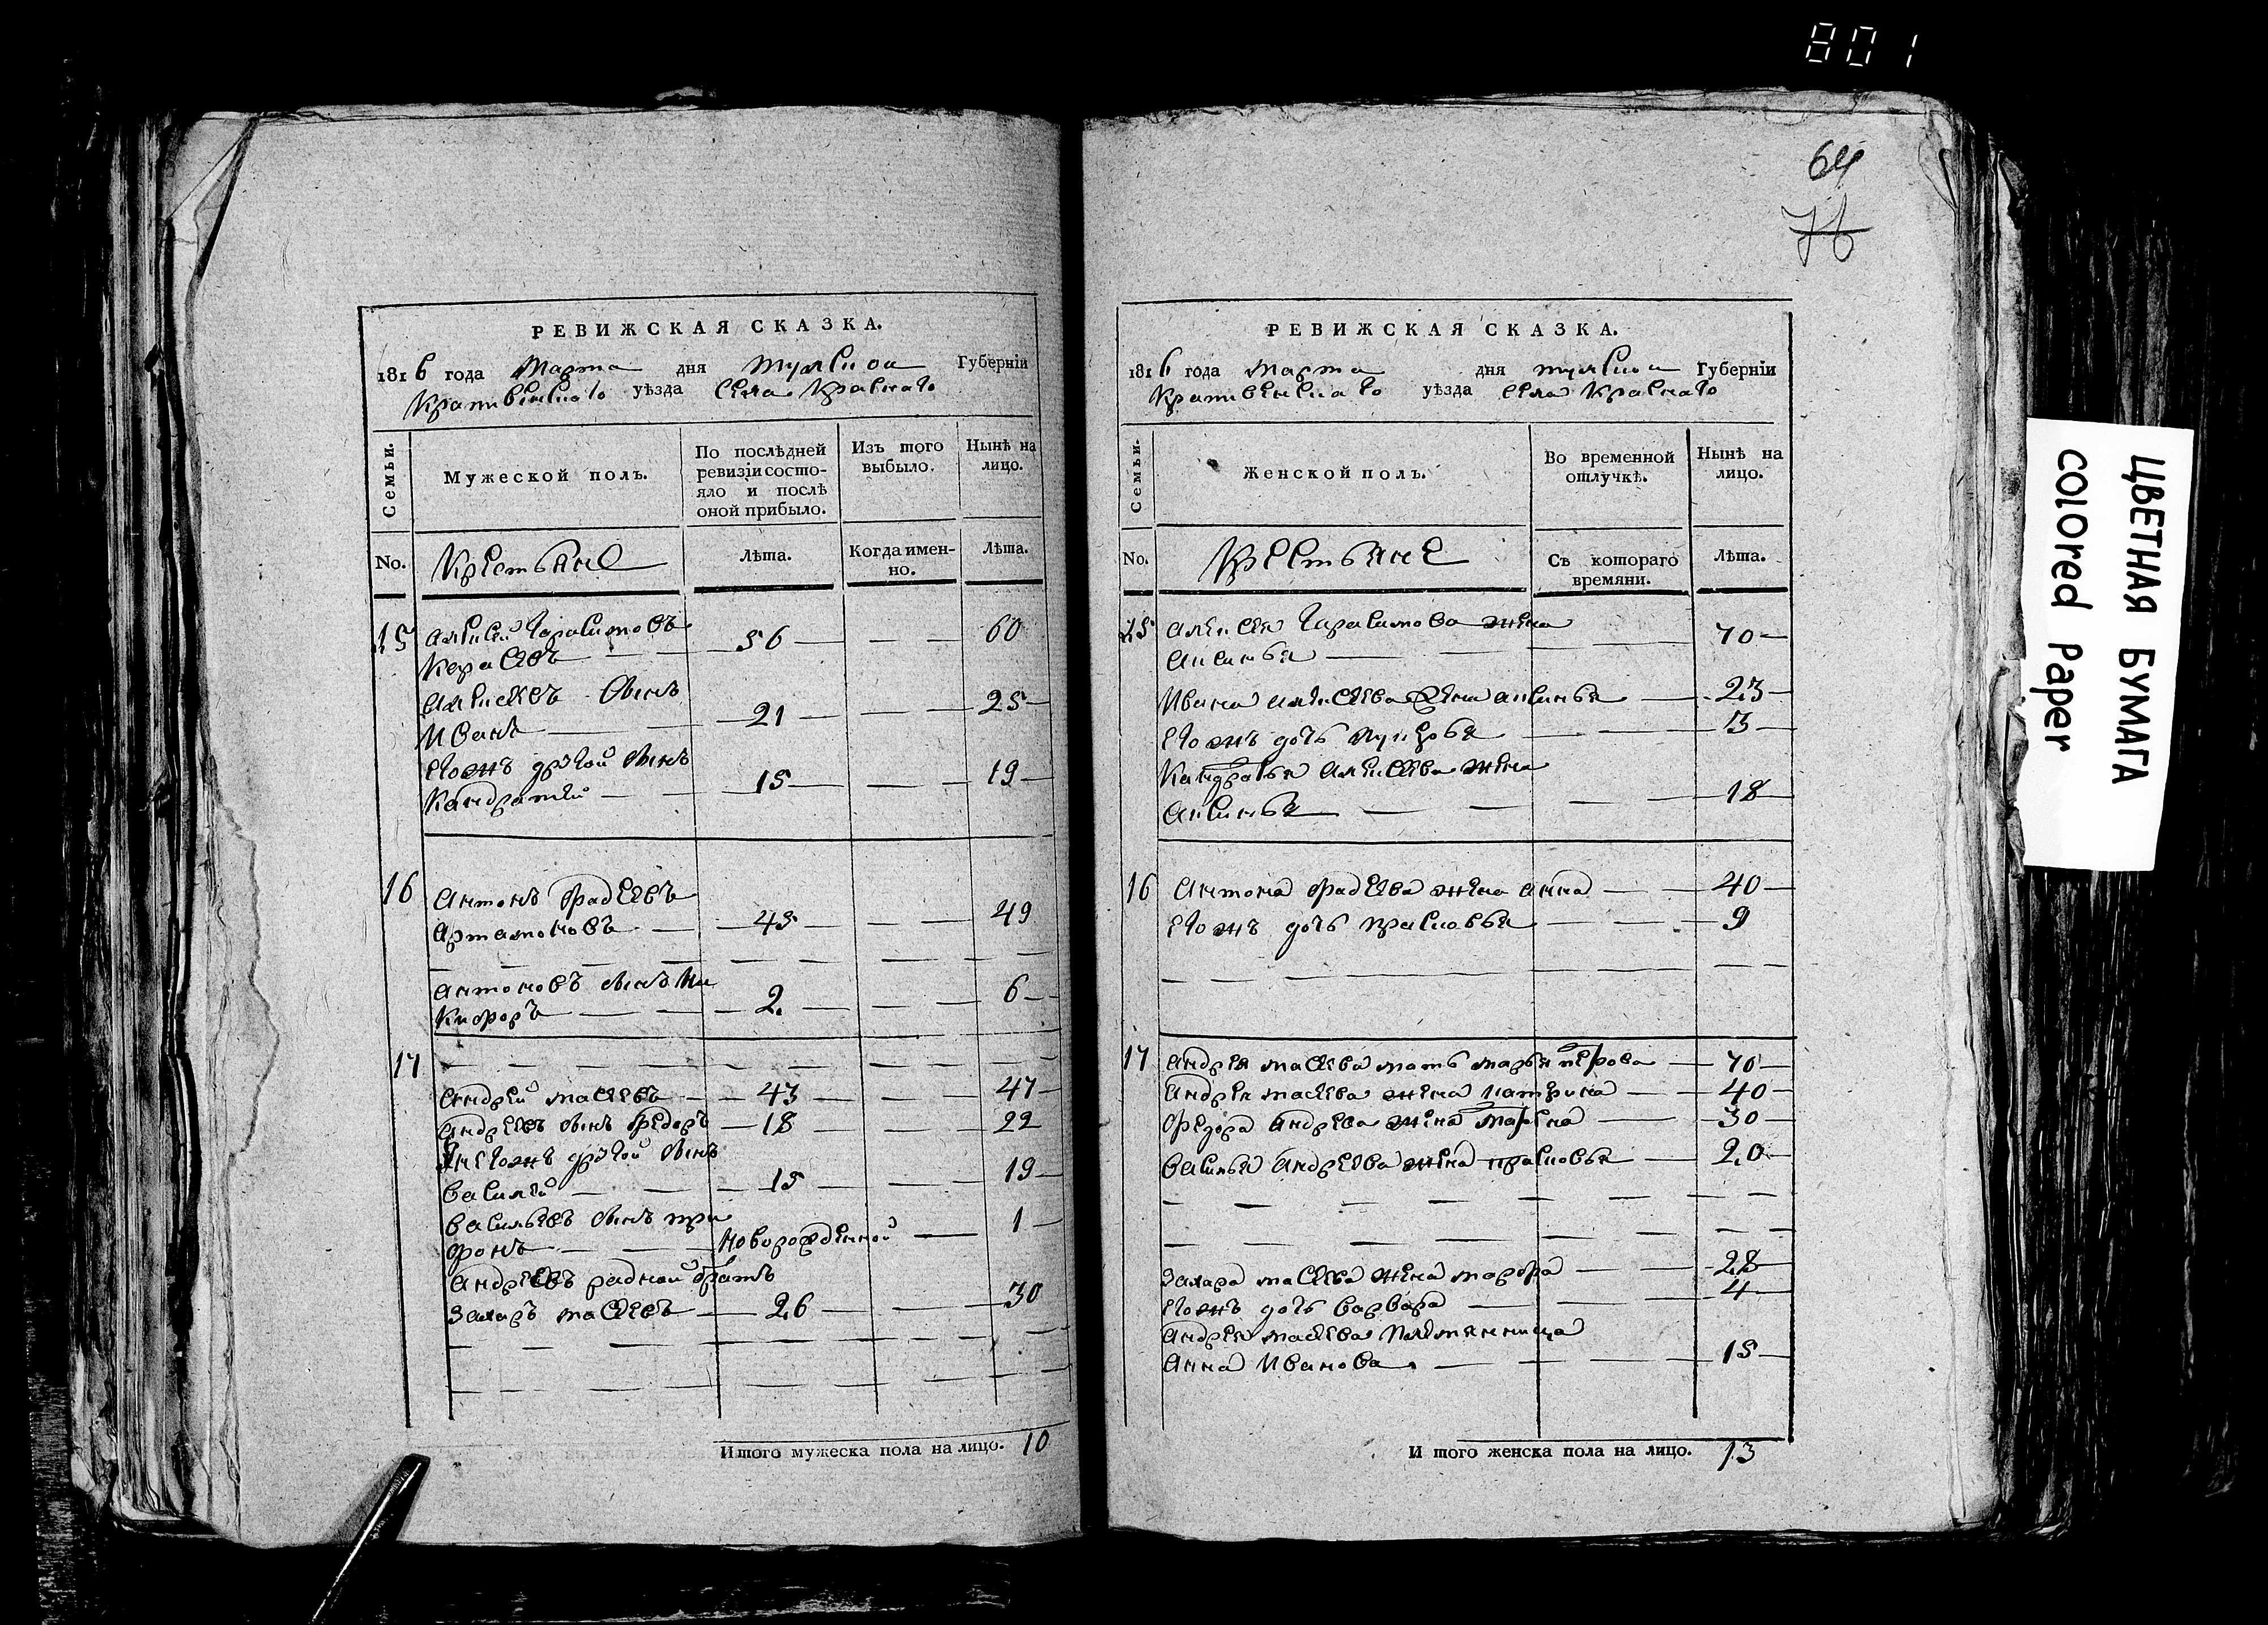 801
64
76
РЕВИЖСКАЯ СКАЗКА.
1816 года Марта дня тулской Губерніи
Крапивенского уѣзда села Краснаго
Семьи.
Мужеской полъ.
По послѣдней ревизіи состояло и послѣ оной прибыло.
Изъ того выбыло.
Нынѣ на лицо.
No.
Крестьяне
Лѣта.
Когда именно.
Лѣта.
15 алексей Гарасимовъ
56 — — 60
алексеевъ сынъ
Иванъ — 21 — — 25
Егожъ другой сынъ
Кандратей — 15 — — 19
16 антонъ фадеевъ
артамоновъ — 45 — — 49
антоновъ сынъ Ни
кифоръ — 2 — — 6
17
андрей масеевъ — 43 — — 47
андреевъ сынъ федоръ — 18 — — 22
Егожъ другой сынъ
василей — 15 — — 19
васильевъ сынъ три
фонъ — новорожденной — 1
андреевъ радной братъ
захаръ масеевъ — 26 — — 30
Итого мужеска пола на лицо. 10
РЕВИЖСКАЯ СКАЗКА.
1816 года марта дня тулской Губерніи
Крапивенскаго уѣзда села Краснаго
Семьи.
Женской полъ.
Во временной отлучкѣ.
Нынѣ на лицо.
No.
Крестьяне
Съ котораго времяни.
Лѣта.
15 алексея Гарасимова жена
аксинья — 70
Ивана алексеева жена аксинья — 23
Егожъ дочь лукерья — 3
Кандратья алексеева жена
аксинья — 18
16 антона фадеева жена анна — 40
Егожъ дочь прасковья — 9
17 андрея масеева мать марья петрова — 70
андрея масеева жена катерина — 40
федора андреева жена марина — 30
василья андреева жена прасковья — 20
захара масеева жена марфа — 28
Егожъ дочь варвара — 4
андрея масеева племянница
анна Иванова — 15
И того женска пола на лицо. 13
ЦВЕТНАЯ БУМАГА
COLORED PAPER